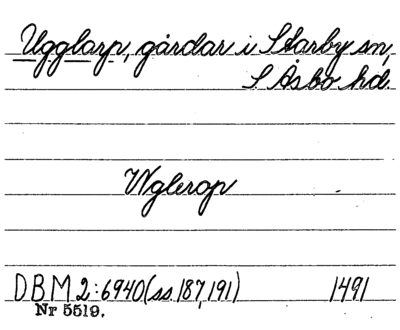 Ugglarp, gårdar i Starby sn,
S Åsbo hd.
Vglerop
DBM 2:6940(ss.187,191) 1491
Nr 5519.